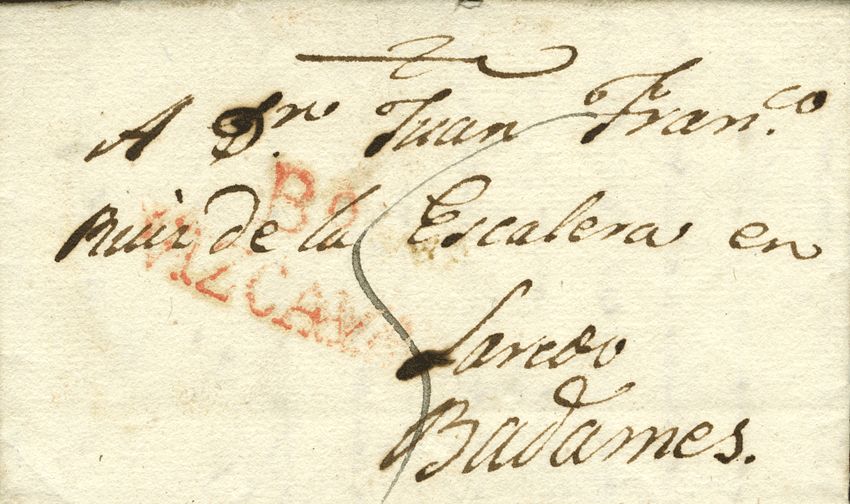 A Dn. Juan Franco
Ruiz de la Escalera en
Laredo
Badames.
Bo
VIZCAYA